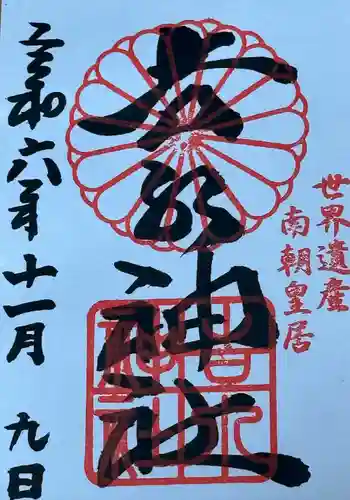 世界遺産
南朝皇居
吉水神社
令和六年十一月九日
吉水神社